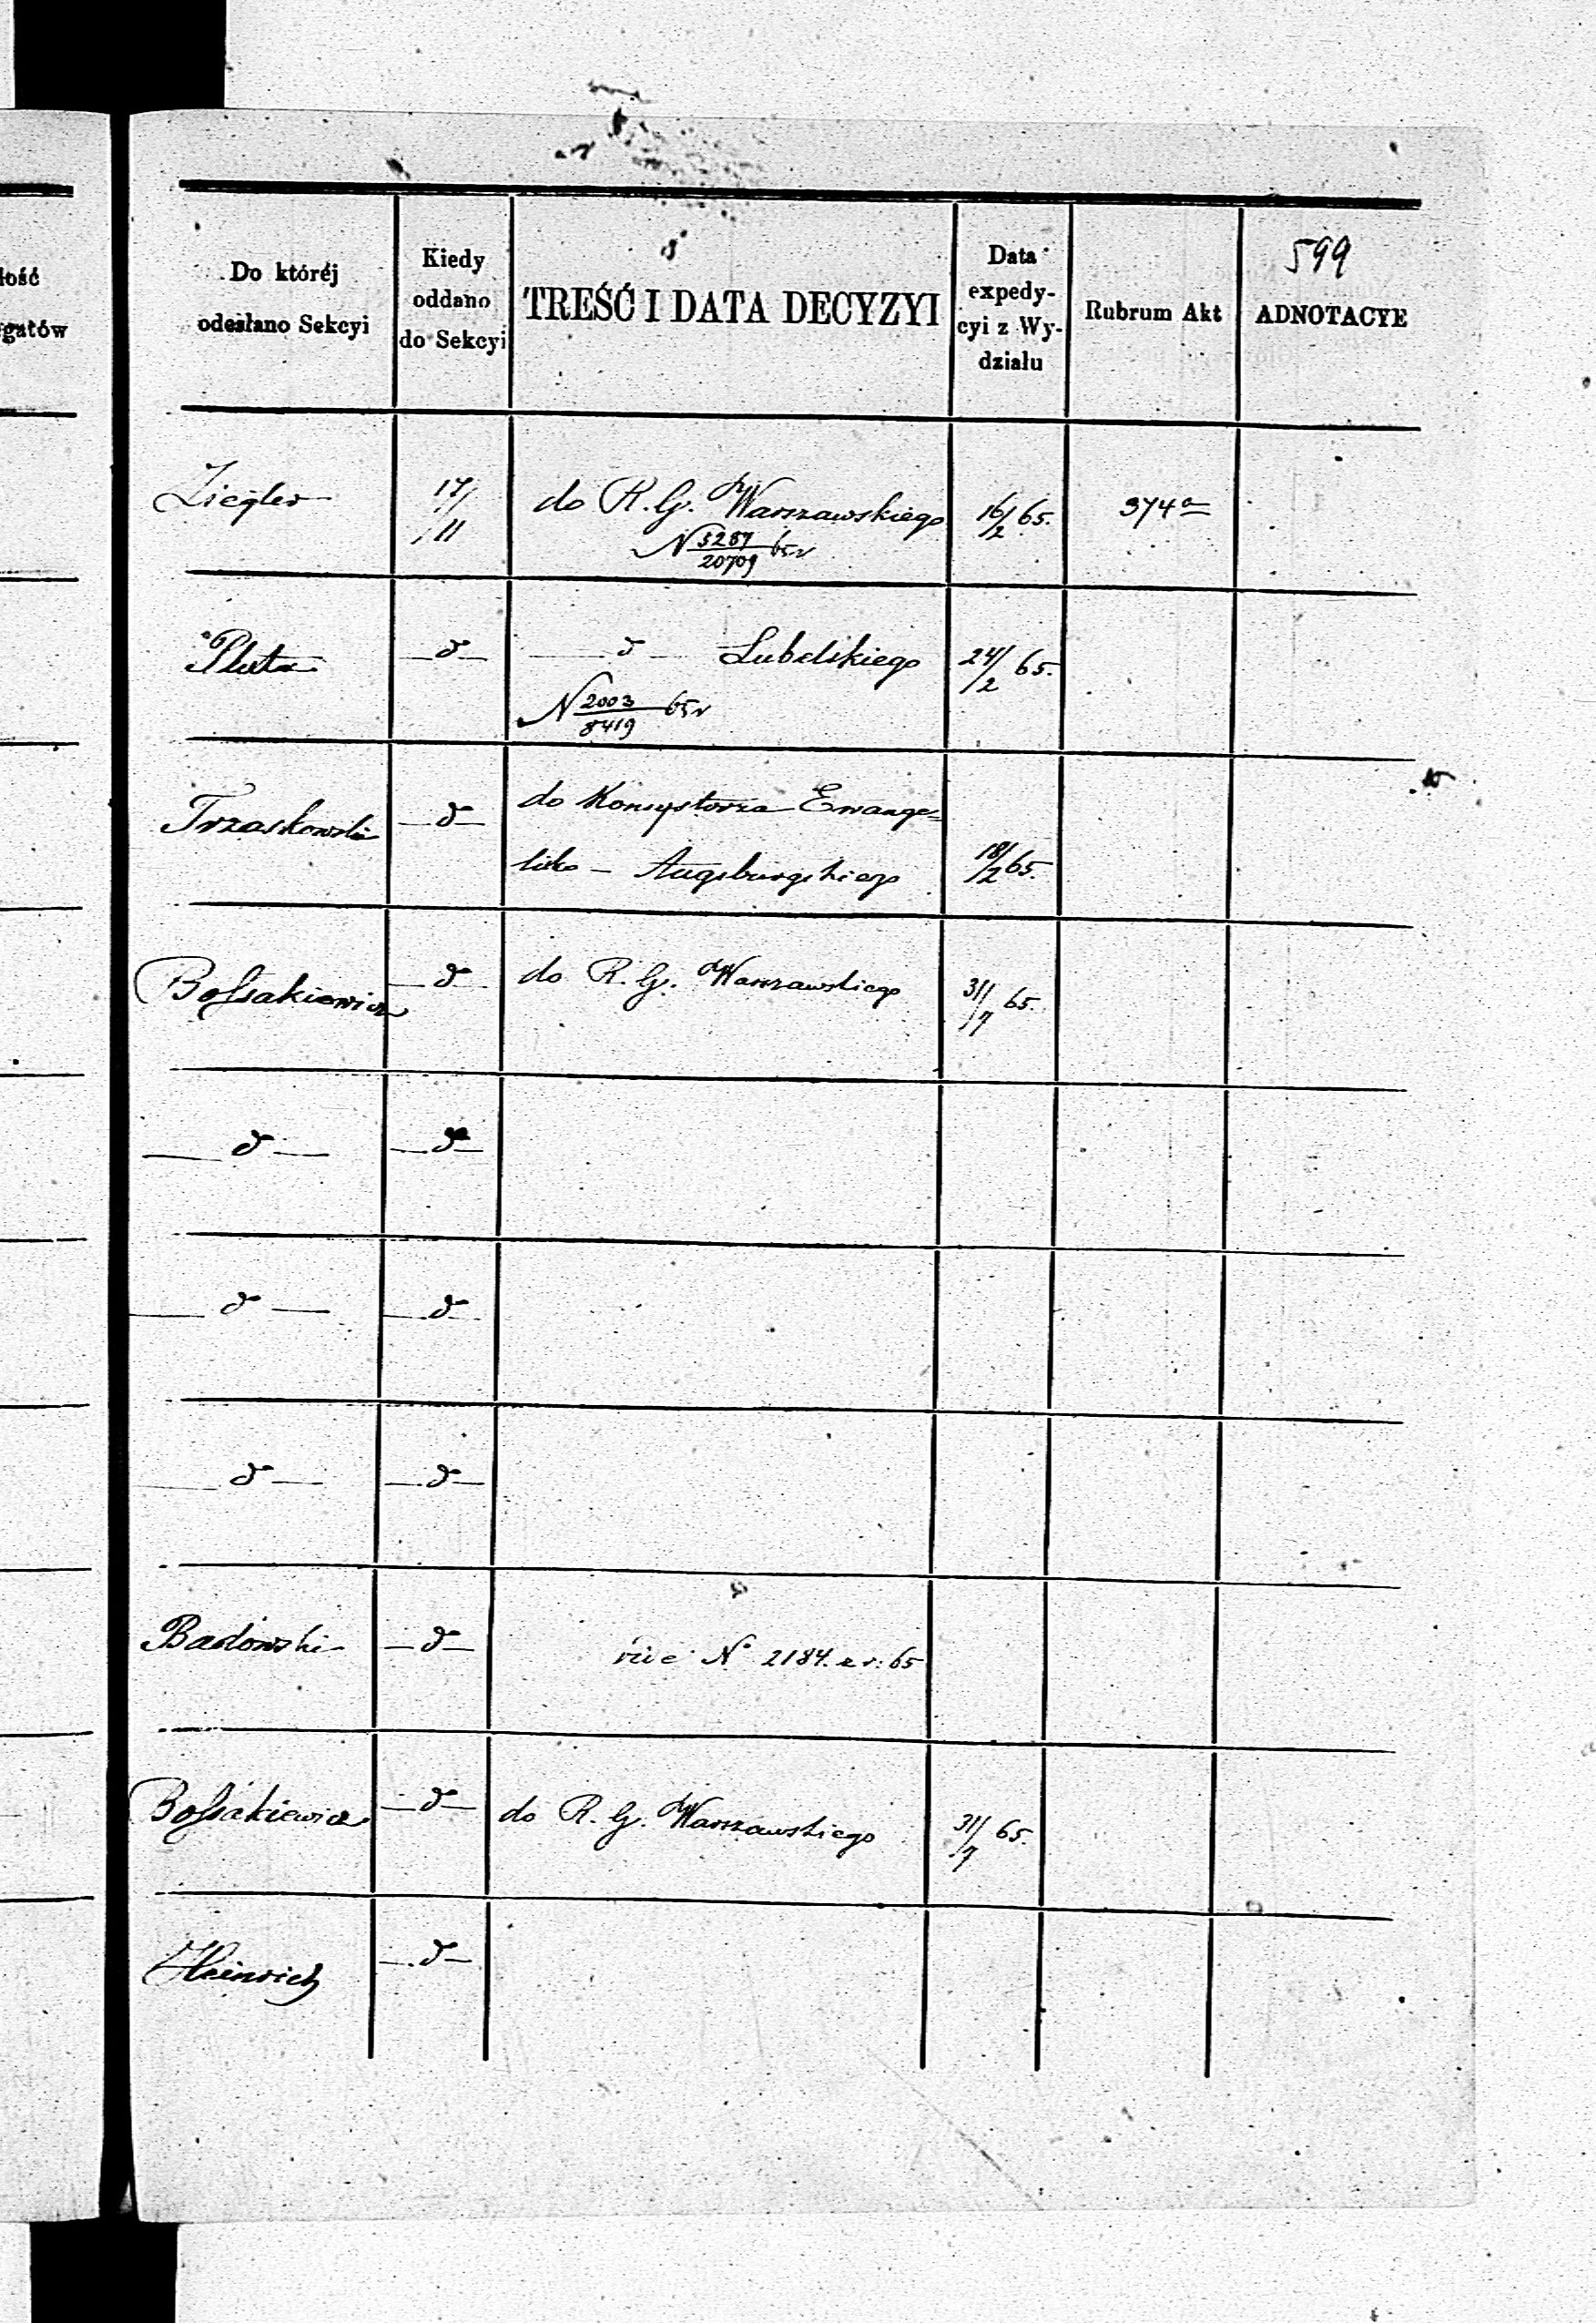 599
łość
gatów
Do któréj
odesłano Sekcyi
Kiedy
oddano
do Sekcyi
TREŚĆ I DATA DECYZYI
Data
expedy-
cyi z Wy-
działu
Rubrum Akt
ADNOTACYE
Ziegler 17/11 do R. G. Warszawskiego 16/2 65. 374a
N 5287/20709 65 r
Pluta —d— —d— Lubelskiego 24/2 65.
N 2003/8419 65 r
Trzaskowski —d— do Konsystorza Ewange=
licko – Augsburgskiego 18/2 65.
Bossakiewicz —d— do R. G. Warszawskiego 31/7 65.
—d— —d—
—d— —d—
—d— —d—
Badowski —d— vide No 2184. z r: 65
Bossakiewicz —d— do R. G. Warszawskiego 31/7 65.
Heinrich —d—